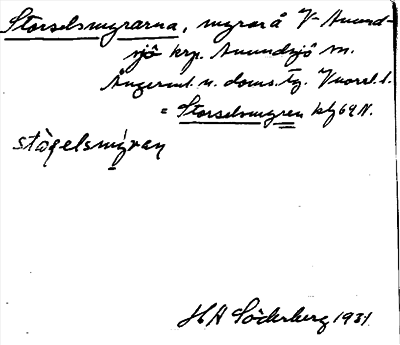 Storselsmyrarna, myrar å V Anund-
sjö krp. Anundsjö sn.
Ångerml. n. doms. tg. Vnorrl. l.
= Storselsmyren kbl 69 N.
stògelsmýran
H A Söderberg 1931